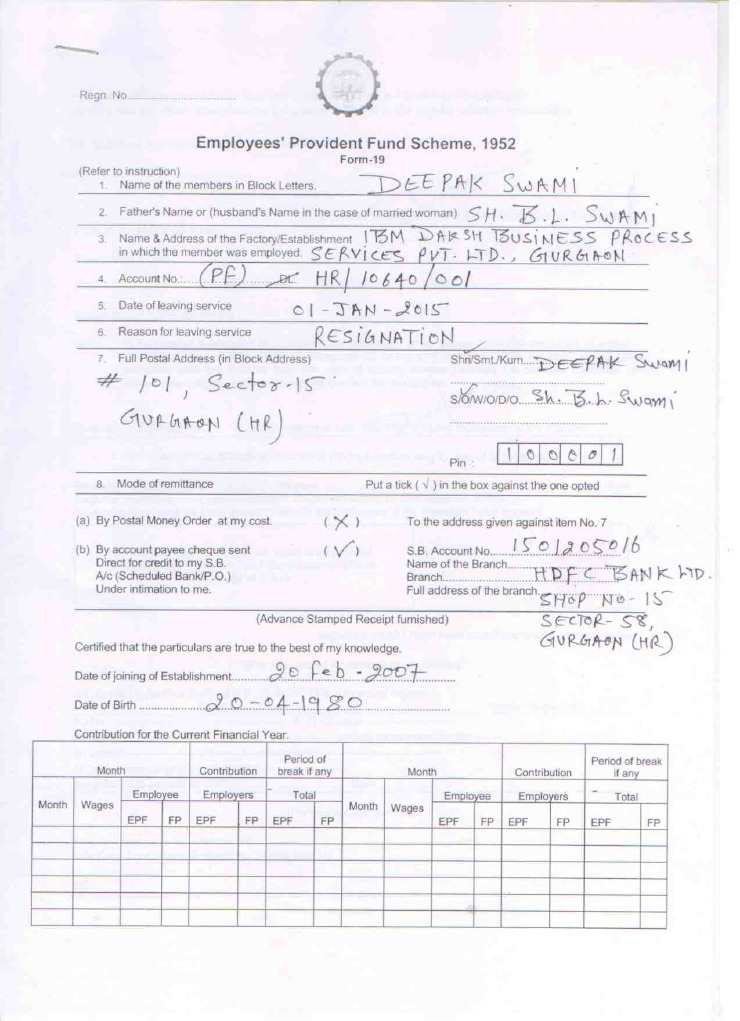 Regn. No.
Employees' Provident Fund Scheme, 1952
Form-19
(Refer to instruction)
1. Name of the members in Block Letters. DEEPAK SWAMI
2. Father's Name or (husband's Name in the case of married woman) SH. B.L. SWAMI
3. Name & Address of the Factory/Establishment IBM DAKSH BUSINESS PROCESS
in which the member was employed. SERVICES PVT. LTD., GURGAON
4. Account No.: (PF) HR/10640/001
5. Date of leaving service 01-JAN-2015
6. Reason for leaving service RESIGNATION
7. Full Postal Address (in Block Address) Shri/Smt./Kum. DEEPAK Swami
# 101, Sector-15
S/O/W/O/D/O Sh. B.L. Swami
GURGAON (HR)
Pin : 1 0 0 0 0 1
8. Mode of remittance Put a tick ( √ ) in the box against the one opted
(a) By Postal Money Order at my cost. ( X ) To the address given against item No. 7
(b) By account payee cheque sent ( √ ) S.B. Account No. 1501205016
Direct for credit to my S.B. Name of the Branch
A/c (Scheduled Bank/P.O.) Branch HDFC BANK LTD.
Under intimation to me. Full address of the branch SHOP NO-15
(Advance Stamped Receipt furnished) SECTOR-58,
GURGAON (HR)
Certified that the particulars are true to the best of my knowledge.
Date of joining of Establishment 20 Feb - 2007
Date of Birth 20-04-1980
Contribution for the Current Financial Year.
Month Contribution Period of break if any Month Contribution Period of break if any
Month Wages Employee Employers Total Month Wages Employee Employers Total
EPF FP EPF FP EPF FP EPF FP EPF FP EPF FP